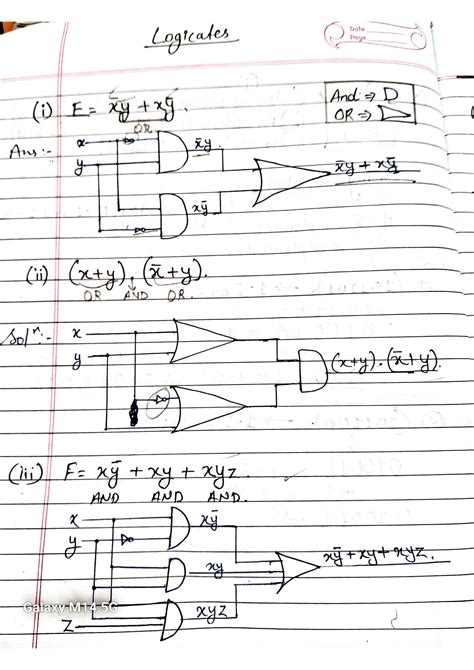 Logicates
Date
Page
(i) E = x̄y + xȳ.
OR
And ⇒ D
OR ⇒
Ans:-
x
y
x̄y
xȳ
x̄y + xȳ
(ii) (x+y) . (x̄+y).
OR AND OR.
Solⁿ:-
x
y
(x+y) . (x̄+y).
(iii) F = xȳ + xy + xyz.
AND AND AND.
x
y
Z
xȳ
xy
xyz
xȳ + xy + xyz.
Galaxy M14 5G